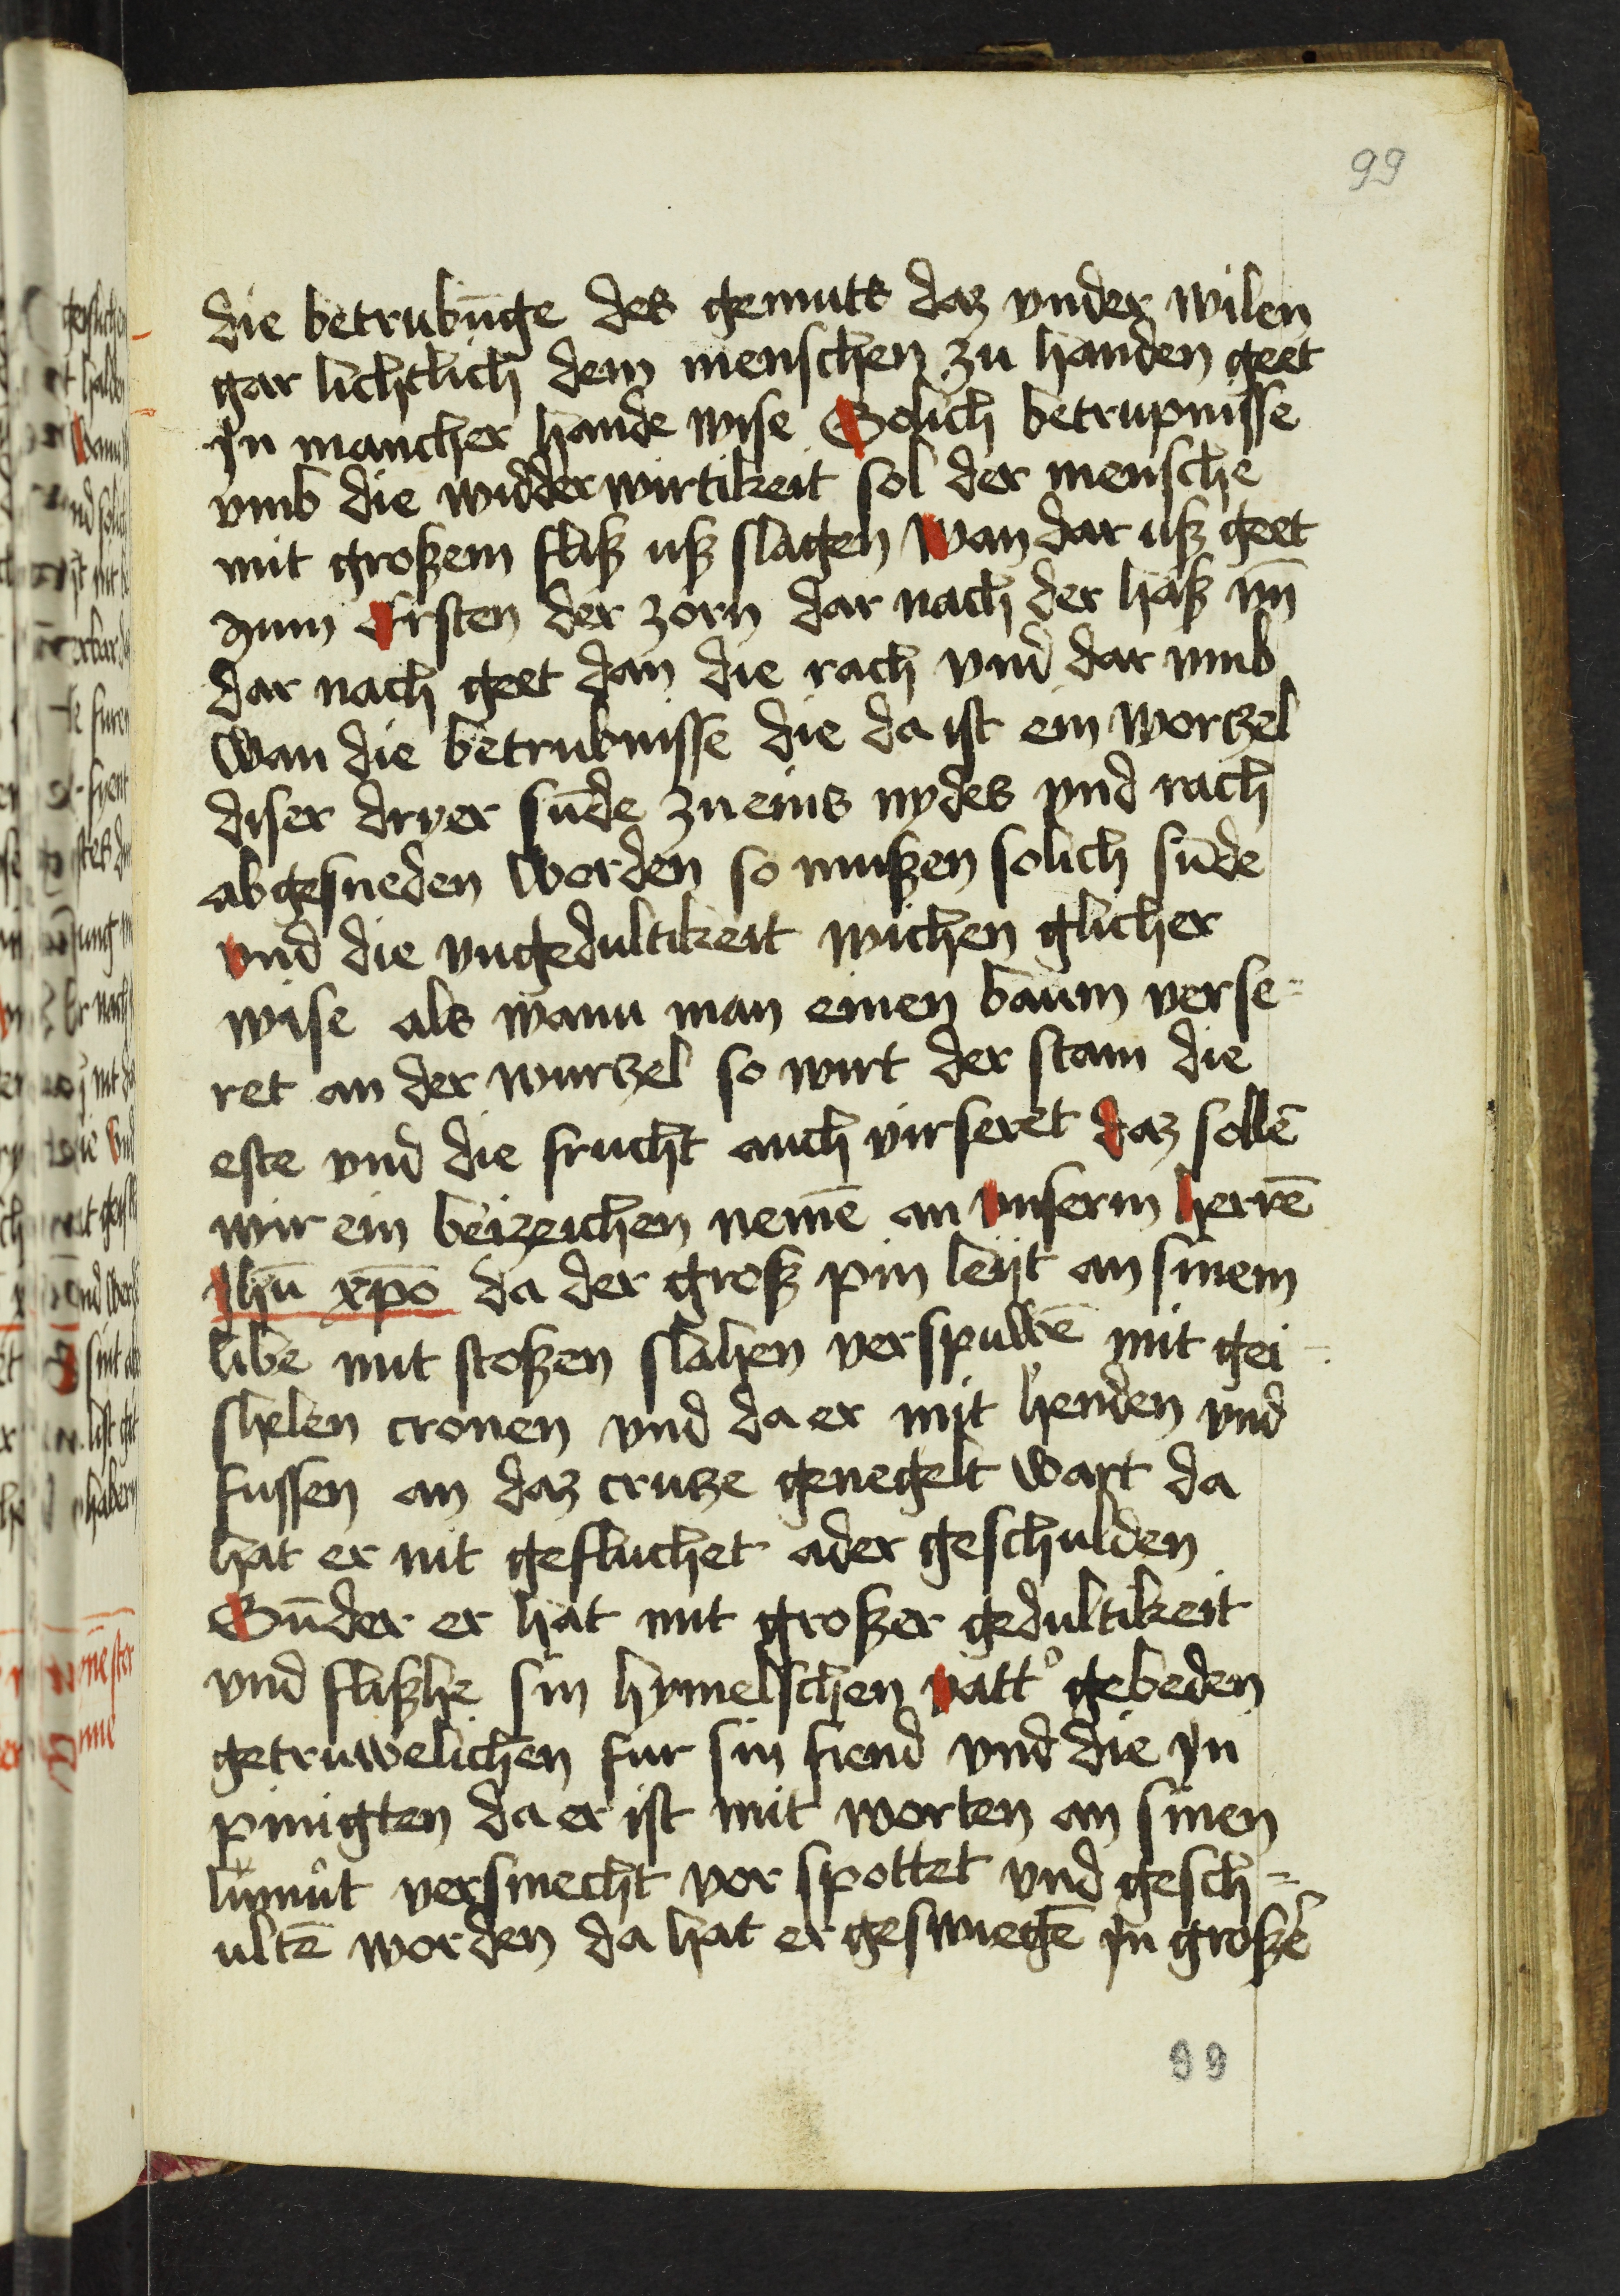 99
die betrubūge des gemuts daz vnder wilen
gar lichtlich dem menschen zu handen geet
yn mancher hande wise Solich betrupnisse
vmb die widderwirtikeit sol der mensche
mit großem fliß uß slagen Wan dar uß geet
zum Ersten der zorn dar nach der haß vn̄
dar nach geet dan die rach vnd dar vmb
Wan die betrubnisse die da ist ein wortzel
diser dryer sūde zueins nydes vnd rach
abgesneden werden so mußen solich sūde
vnd die vngedultikeit wichen glicher
wise als wann man einen baum verse=
ret an der wurtzel so wirt der stam die
este vnd die frucht auch virseret daz sollē
wir ein beizeichen nemē an vnserm herrē
Jhū xp̄o da der groß pin leijt an sinem
libe mit stoßen slahen verspuwē mit gei-
shelen cronen vnd da er mit henden vnd
fussen an daz crutze genegelt wart da
hat er nit gefluchet ader geschulden
Sūder er hat mit großer gedultikeit
vnd flißhe sin hymelschen vatt° gebeden
getruwelichen fur sin fiend vnd die yn
pinigten da er ist mit worten an sinen
lumůt versmecht vor spottet vnd gesch=
ultē worden da hat er geswiegē yn großē
99